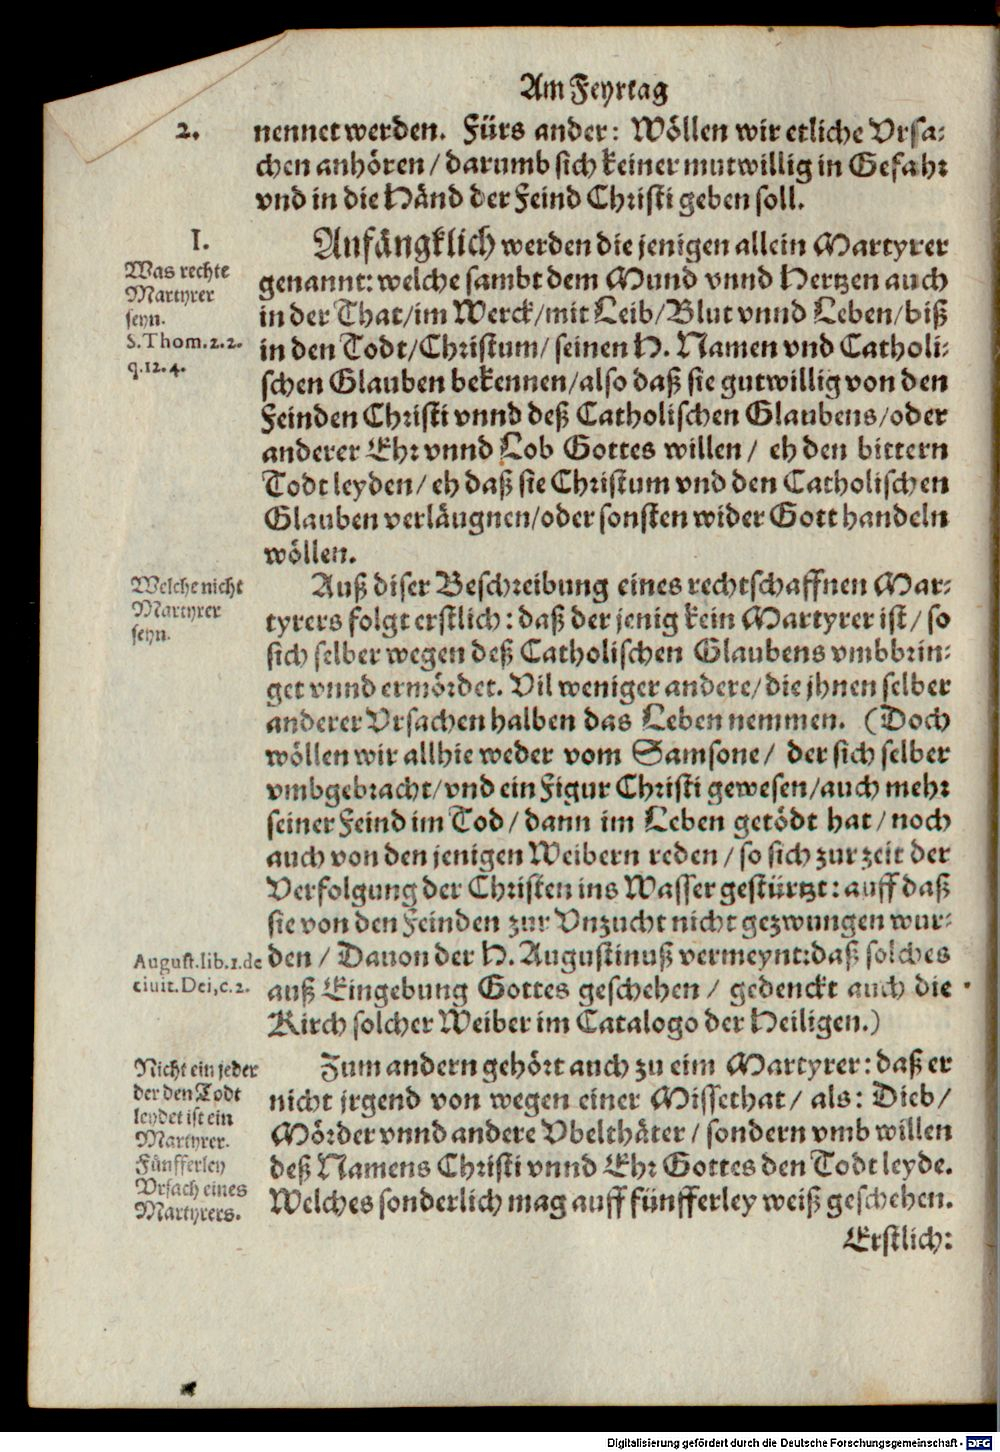 Am Feyrtag
2.
nennet werden. Fürs ander: Wöllen wir etliche Vrsa-
chen anhören/ darumb sich keiner mutwillig in Gefahr
vnd in die Händ der Feind Christi geben soll.
I.
Anfängklich werden die jenigen allein Martyrer
Was rechte
Martyrer
seyn.
S. Thom. 2. 2.
q. 12. 4.
genannt: welche sambt dem Mund vnnd Hertzen auch
in der That/ im Werck/ mit Leib/ Blut vnnd Leben/ biß
in den Todt/ Christum/ seinen H. Namen vnd Catholi-
schen Glauben bekennen/ also daß sie gutwillig von den
Feinden Christi vnnd deß Catholischen Glaubens/ oder
anderer Ehr vnnd Lob Gottes willen/ eh den bittern
Todt leyden/ eh daß sie Christum vnd den Catholischen
Glauben verläugnen/ oder sonsten wider Gott handeln
wöllen.
Welche nicht
Martyrer
seyn.
Auß diser Beschreibung eines rechtschaffnen Mar-
tyrers folgt erstlich: daß der jenig kein Martyrer ist/ so
sich selber wegen deß Catholischen Glaubens vmbbrin-
get vnnd ermördet. Vil weniger andere/ die jhnen selber
anderer Vrsachen halben das Leben nemmen. (Doch
wöllen wir allhie weder vom Samsone/ der sich selber
vmbgebracht/ vnd ein Figur Christi gewesen/ auch mehr
seiner Feind im Tod/ dann im Leben getödt hat/ noch
auch von den jenigen Weibern reden/ so sich zur zeit der
Verfolgung der Christen ins Wasser gestürtzt: auff daß
sie von den Feinden zur Vnzucht nicht gezwungen wur-
August. lib. 1. de
ciuit. Dei, c. 2.
den/ Dauon der H. Augustinuß vermeynt: daß solches
auß Eingebung Gottes geschehen/ gedenckt auch die
Kirch solcher Weiber im Catalogo der Heiligen.)
Nicht ein jeder
der den Todt
leydet ist ein
Martyrer.
Fünfferley
Vrsach eines
Martyrers.
Zum andern gehört auch zu eim Martyrer: daß er
nicht jrgend von wegen einer Missethat/ als: Dieb/
Mörder vnnd andere Vbelthäter/ sondern vmb willen
deß Namens Christi vnnd Ehr Gottes den Todt leyde.
Welches sonderlich mag auff fünfferley weiß geschehen.
Erstlich:
Digitalisierung gefördert durch die Deutsche Forschungsgemeinschaft - DFG